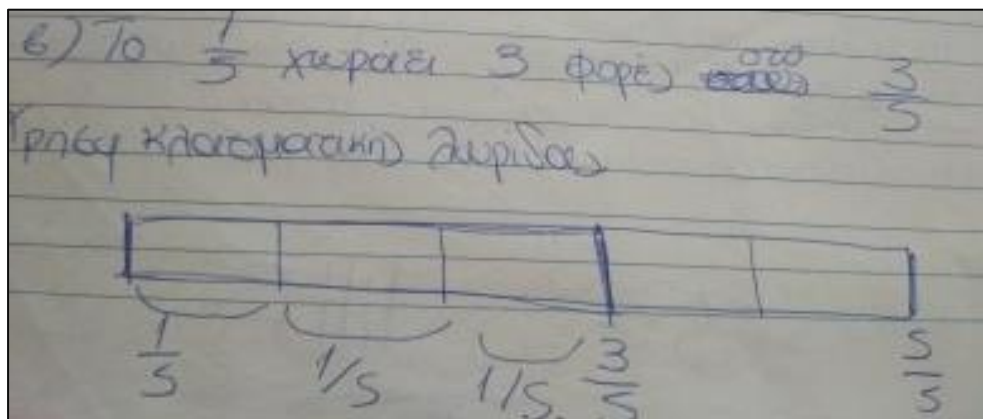 β) Το 1/5 χωράει 3 φορές στο 3/5
Χρήση κλασματικής λωρίδας
1/5 1/5 1/5 3/5 5/5